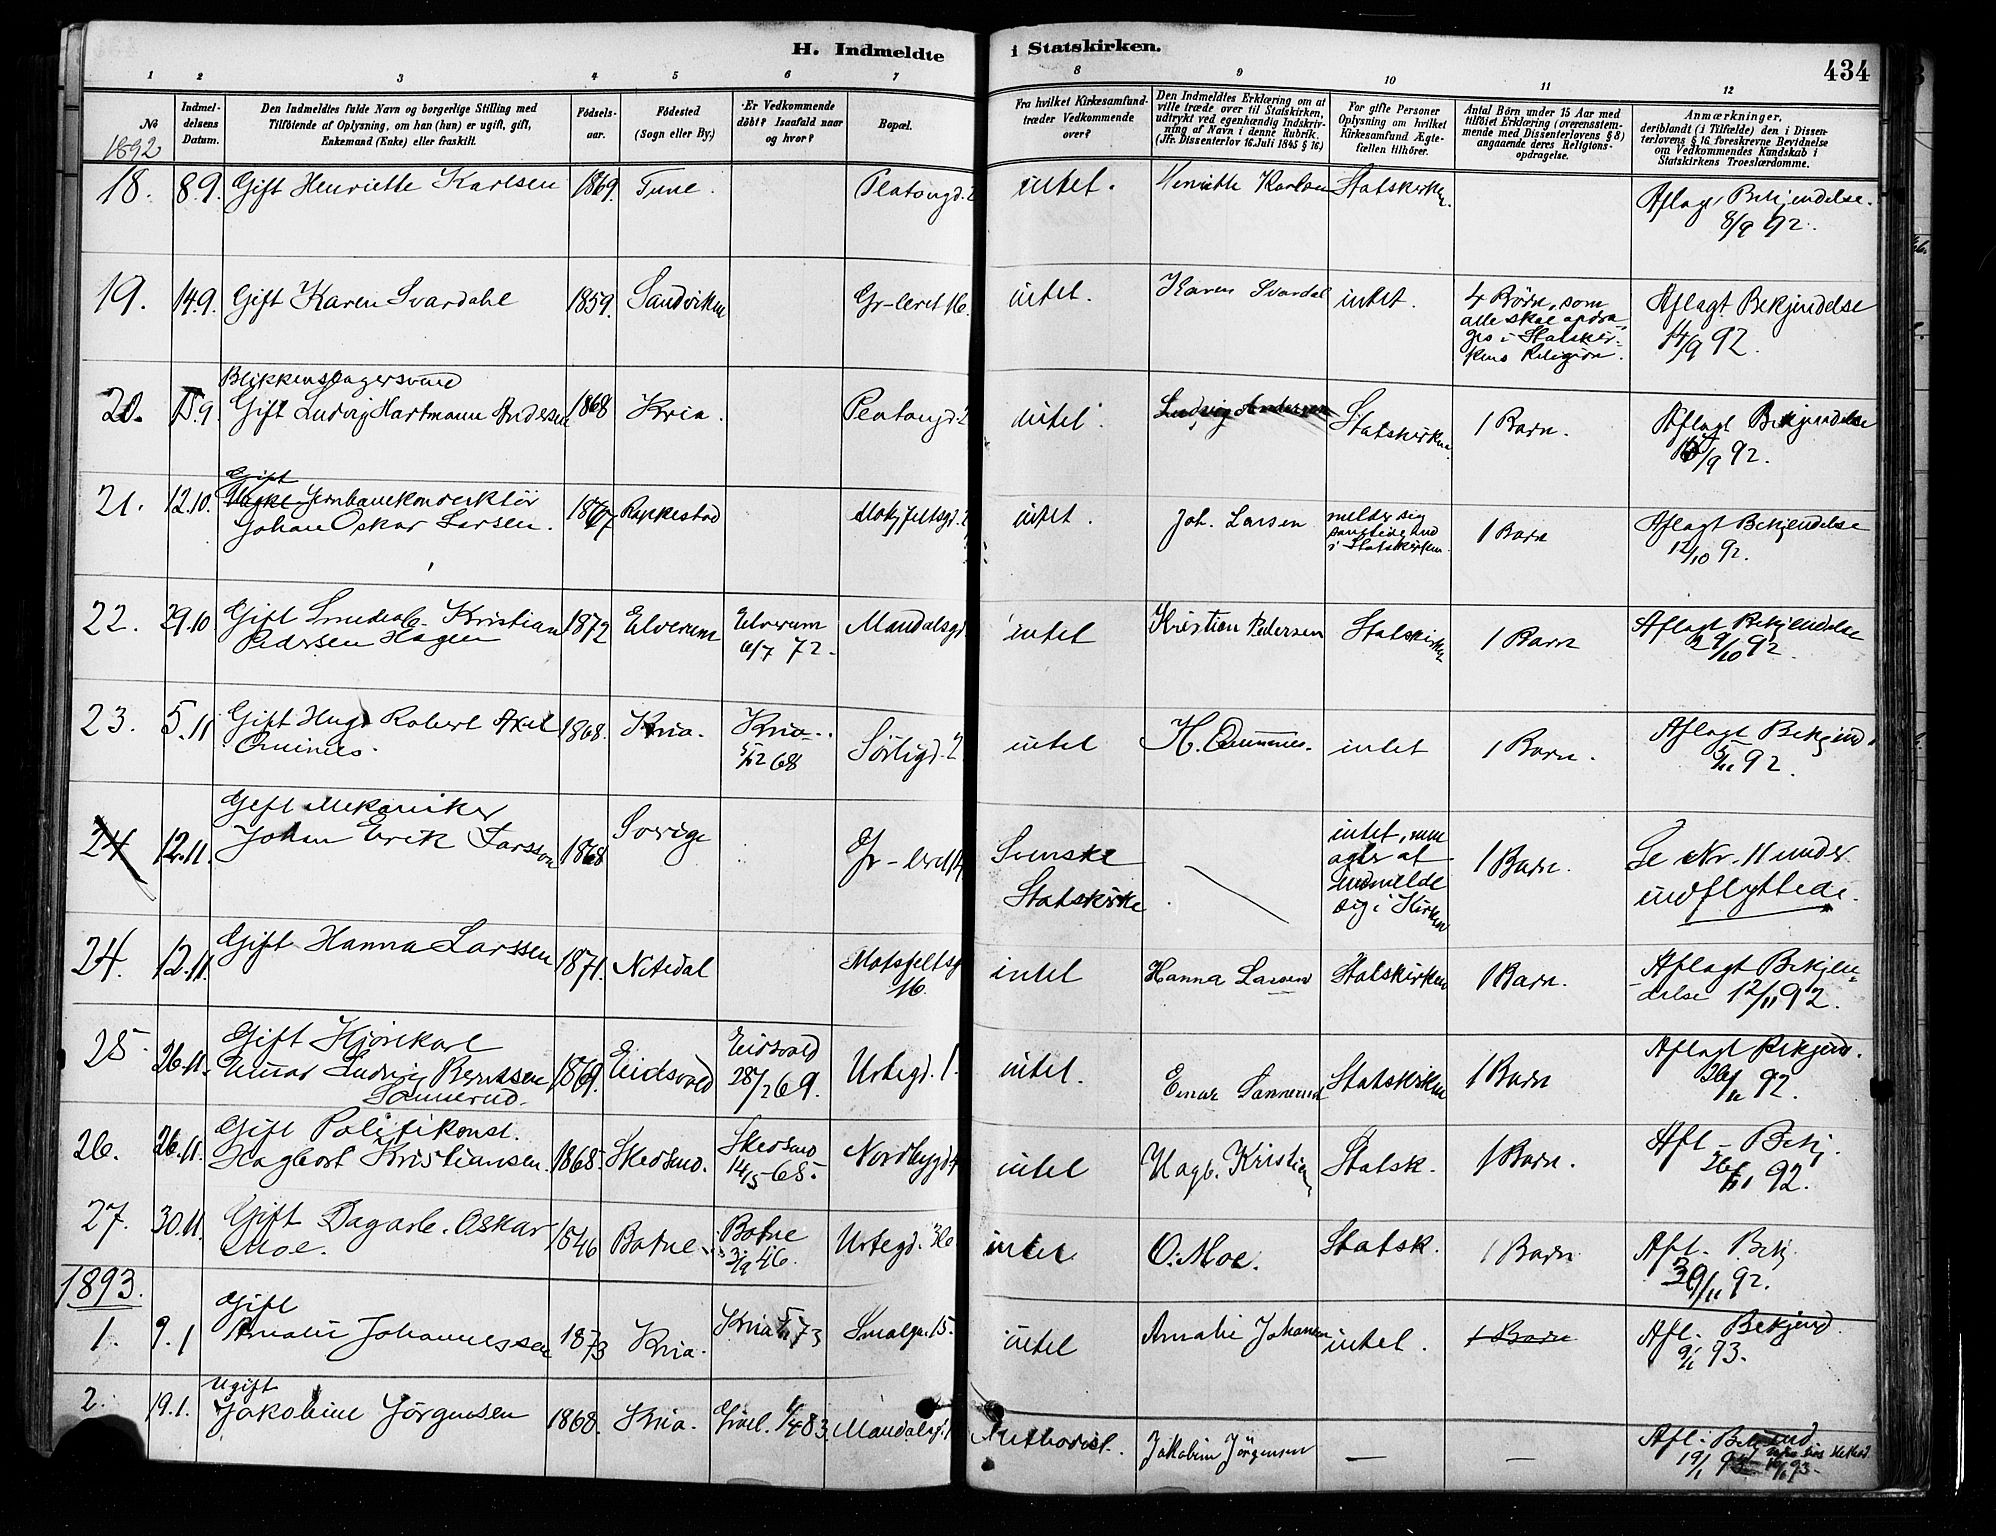 H. Indmeldte i Statskirken.
434
1 2 3 4 5 6 7 8 9 10 11 12
No
1892
Indmel-
delsens
Datum.
Den Indmeldtes fulde Navn og borgerlige Stilling med
Tilföiende af Oplysning, om han (hun) er ugift, gift,
Enkemand (Enke) eller fraskilt.
Födsels-
aar.
Födested
(Sogn eller By.)
Er Vedkommende
döbt? Isaafald naar
og hvor?
Bopæl.
Fra hvilket Kirkesamfund
træder Vedkommende
over?
Den Indmeldtes Erklæring om at
ville træde over til Statskirken,
udtrykt ved egenhændig Indskriv-
ning af Navn i denne Rubrik.
(Jfr. Dissenterlov 16. Juli 1845 § 16)
For gifte Personer
Oplysning om hvilket
Kirkesamfund Ægte-
fællen tilhörer.
Antal Börn under 15 Aar med
tilföiet Erklæring (overensstem-
mende med Dissenterlovens § 8)
angaaende deres Religions-
opdragelse.
Anmærkninger,
deriblandt (i Tilfælde) den i Dissen-
terlovens § 16 foreskrevne Bevidnelse
om Vedkommendes Kundskab i
Statskirkens Troeslærdomme.
18. 8.9. Gift Henriette Karlsen 1869. Tune. intet. Henriette Karlsen Statskirken.
Aflagt Bekjendelse.
8/9 92.
19. 14.9. Gift Karen Svardahl 1859. Sandviken Gr-leret 16. intet. Karen Svardal intet.
4 Børn, som
alle skal opdra-
ges i Statskir-
kens Religion.
Aflagt Bekjendelse
14/9 92.
Blikkenslagersvend
20. 15.9. Gift Ludvig Hartmann Andersen 1868 Kria. intet. Ludvig Andersen Statskirken 1 Barn.
Aflagt Bekjendelse
15/9 92.
Gift
21. 12.10. Jernbanekonduktör
Johan Oskar Larsen. 1867 Rakkestad intet. Joh. Larsen
melder sig
samtidig ind
i Statskirken.
1 Barn
Aflagt Bekjendelse
12/10 92.
22. 29.10 Gift Smedarb. Kristian
Pedersen Hagen 1872 Elverum
Elverum
6/7 72.
Mandalsgd. intet Kristian Pedersen Statskirken 1 Barn
Aflagt Bekjendelse
29/10 92.
23. 5.11 Gift Hugo Robert Axel 1868. Kria.
Kria.
5/12 68
Sörligd. 2 intet intet 1 Barn.
Aflagt Bekjend.
5/11 92.
24 12.11. Gift Mekaniker
Johan Erik Larsson 1868 Sverige Gr-leret 14
Svenske
Statskirke
intet, men
agter at
indmelde
sig i Kirken
1 Barn.
Se Nr. 11 under
indflyttede.
24. 12.11. Gift Hanna Larssen 1871. Nitedal
Motzfeltsg.
16.
intet Hanna Larsen Statskirken 1 Barn.
Aflagt Bekjen-
delse 12/11 92.
25. 26.11. Gift Kjörekarl
Einar Ludvig Berntsen
Sannerud. 1869. Eidsvold
Eidsvold
28/2 69.
Urtegd. 1. intet. Einar Sannerud Statskirken 1 Barn
Aflagt Bekjend.
26/11 92.
26. 26.11. Gift Politikonst.
Hagbart Kristiansen. 1868. Skedsmo.
Skedsmo
14/5 68.
Nordbygd. intet Hagb. Kristian Statsk. 1 Barn.
Afl. Bekj.
26/11 92.
27. 30.11. Gift Dagarb. Oskar
Moe. 1846 Botne
Botne
3/9 46.
Urtegd. 36 intet O. Moe. Statsk. 1 Barn
Afl. Bekj.
30/11 92.
1893.
1. 9.1 Gift
Amalie Johannessen 1873 Kria. Kria 73 Smalgn. 15. intet Amalie Johansen intet. 1 Barn
Afl. Bekjend.
9/1 93.
2. 19.1. Ugift
Jakobine Jörgensen 1868. Kria. Mandalsgd. Methodist. Jakobine Jörgensen — —
Afl. Bekjend.
19/1 93